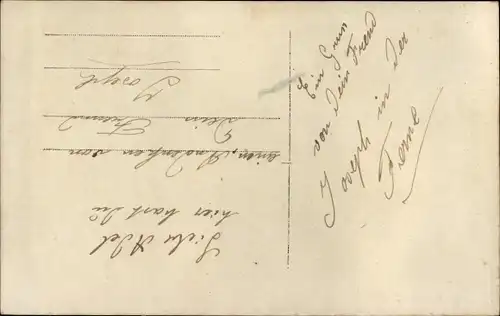 Liebe Adel
hier hast Du
einen Andenken von
Dein Freund
Joseph
Ein Gruss
von dein Freund
Joseph in der
Ferne